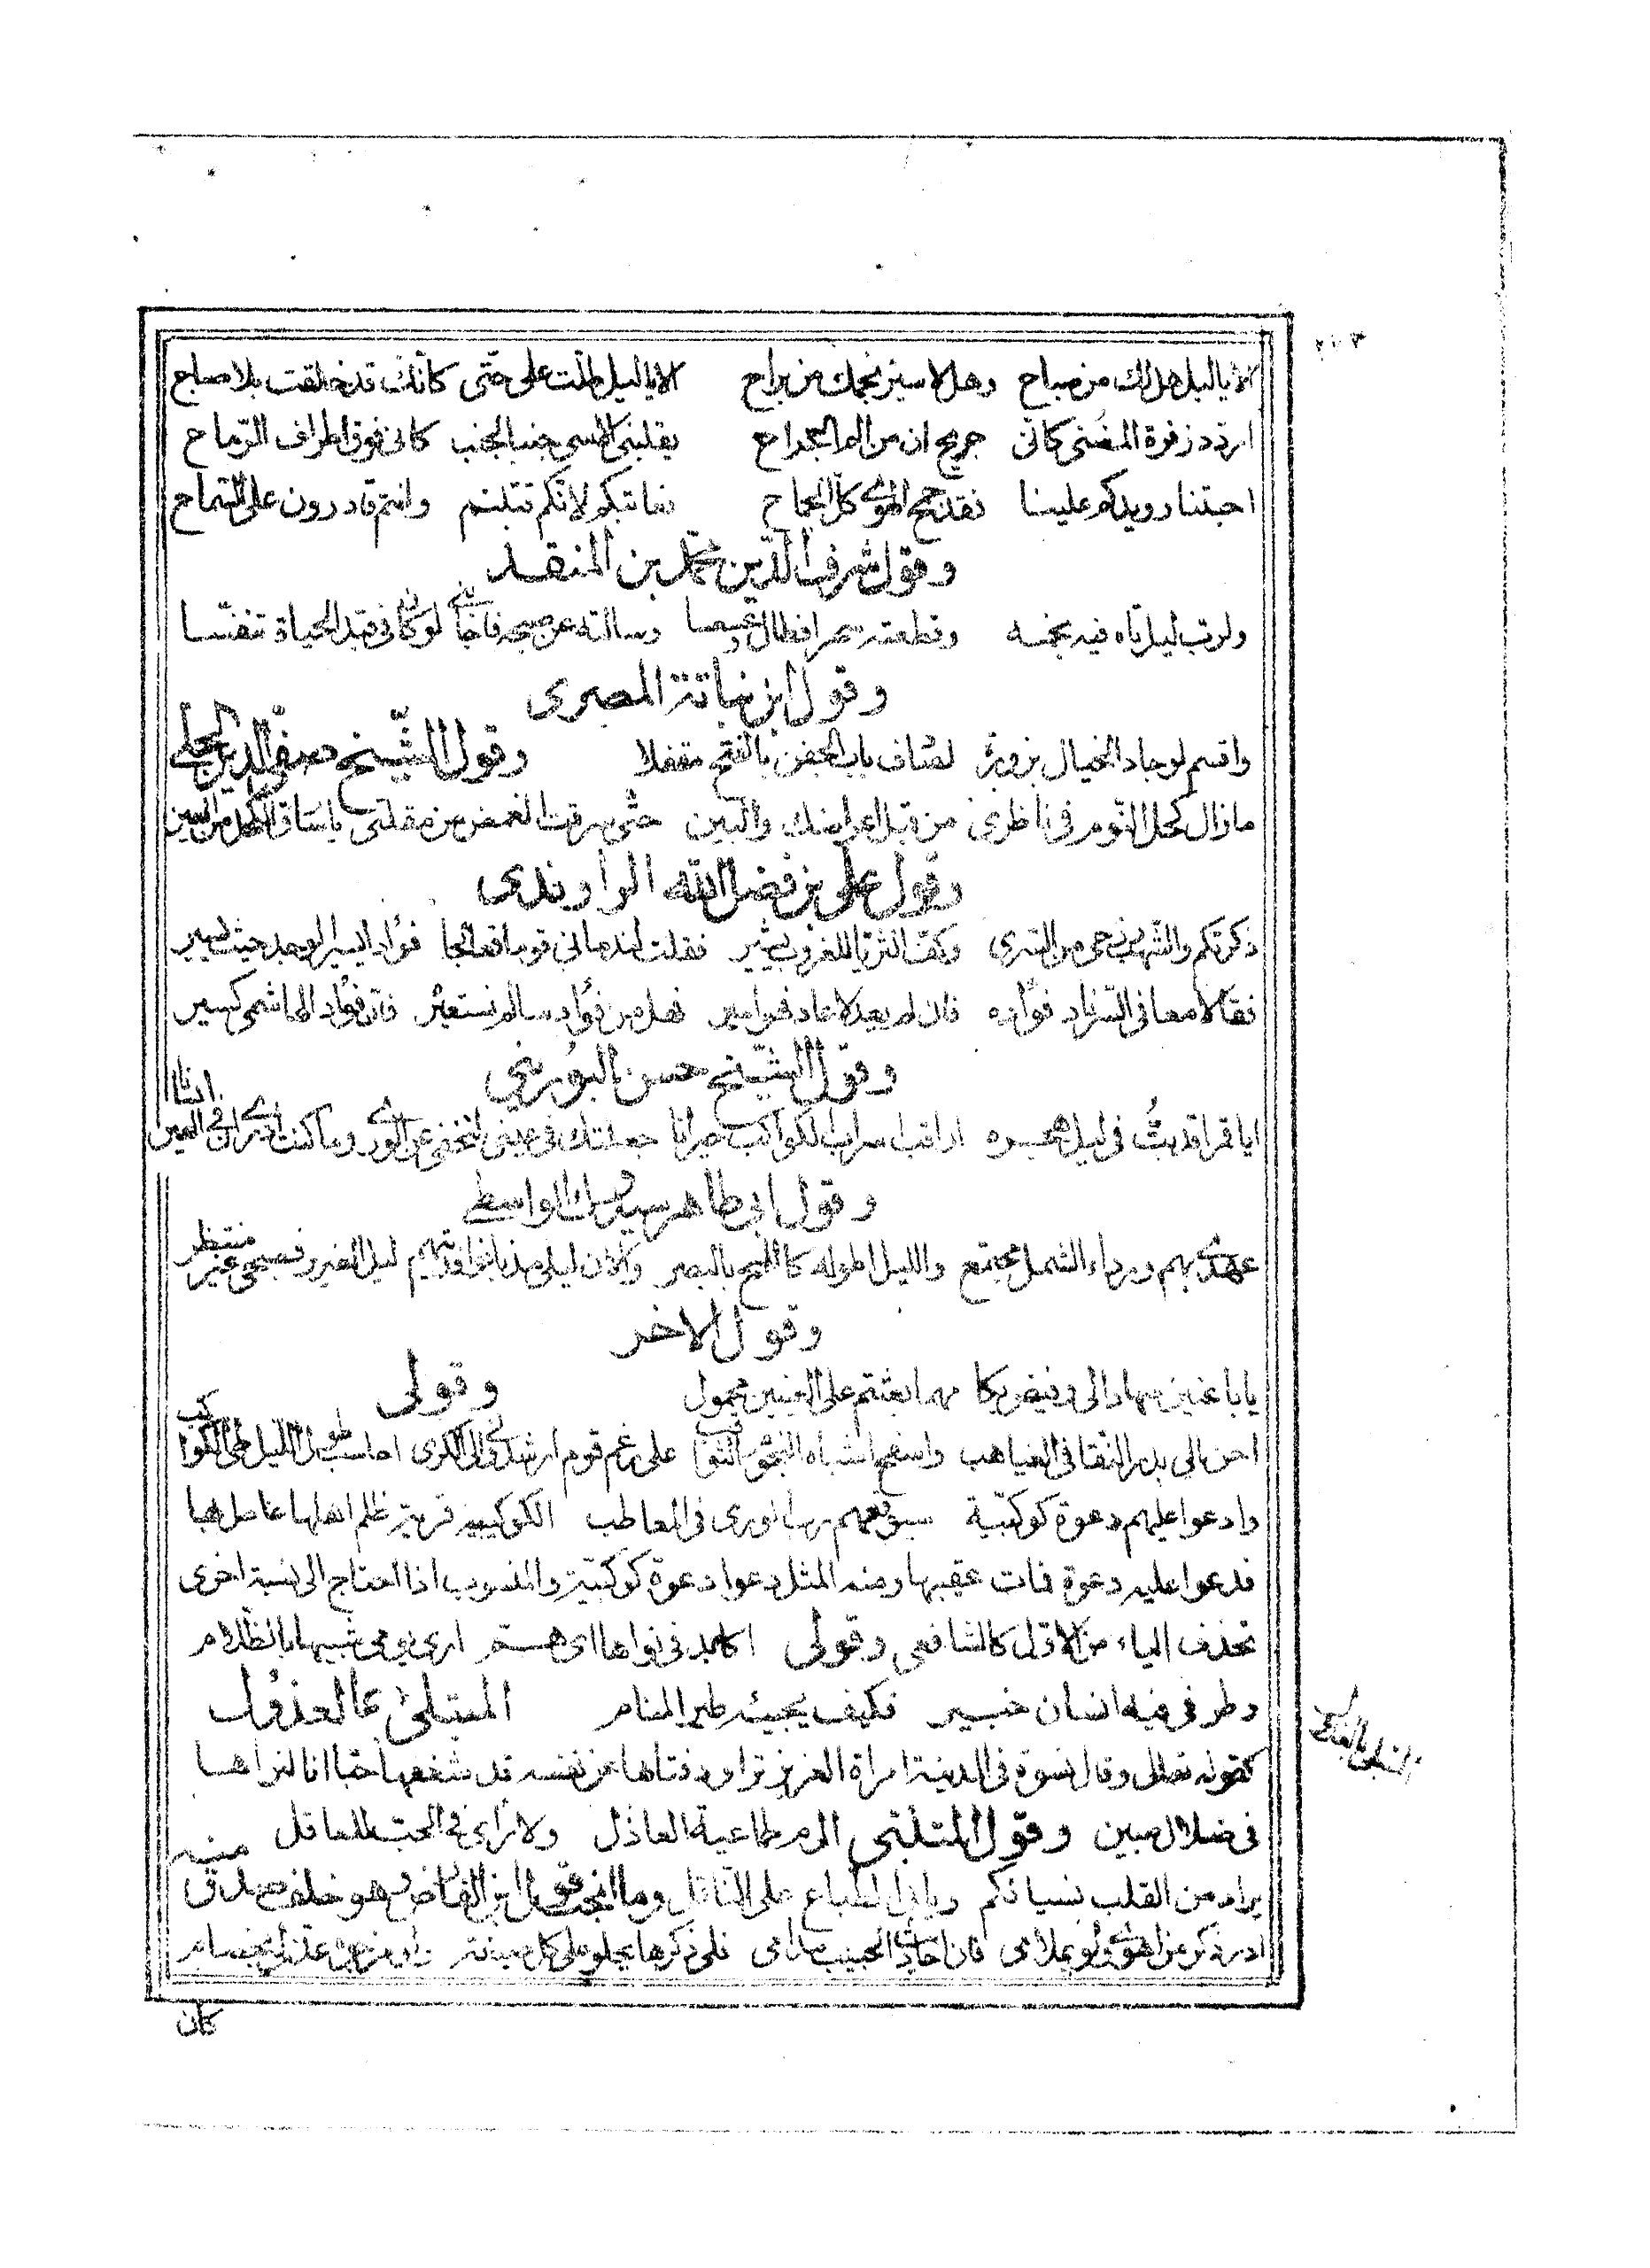 ٢٠٣
الا يا ليل هل لك من صباح وهل لاسير نجمك من براح الا يا ليل طلت على حتّى كانّك قد خلقت بلا صباح
اردد زفرة المضنى كانّى جريح ان من الم الجراح يقلبنى الاسى جنبا لجنب كانى فوق اطراف الرّماح
احبتنا رويدكم علينا فقد جمح الهوى كل الجماح نعاتبكم لانّكم قتلتم وانتم قادرون على السّماح
وقول شرف الدّين محمّد بن المنقد
ولرب ليل تاه فيه نجمه وقطعته سهرا فطال وعسعسا وسالته عن صبحه فاجابنى لو كان فى قيد الحياة تنفّسا
وقول ابن نباتة المصرى
واقسم لو جاد الخيال بزورة لصادف باب الجفن بالفتح مقفلا وقول الشّيخ صفى الدين الحلى
ما زال كحل النّوم فى ناظرى من قبل اعراضك والبين حتّى سرقت الغمض من مقلتى يا سارق الكحل من العين
وقول على بن فضل الله الراوندى
ذكرتكم والشهب من السرى وكف الثريا للغروب يشير فقلت لندمانى قوما فعالجا فؤادا يسير الوجد حيث يسير
فقالا معا فى فؤاده فان لم يعد لا عاد فهو اسير فهل من فؤاد سالم نستعيره فان فؤاد الهاشمى كسير
وقول الشّيخ حسن البورينى
ايا قمرا قد بتّ فى ليل هجره اراقب اسراب الكواكب حيرانا جعلتك فى عينى لتخفى عن الورى وما كنت ادرى ان فى العين انسانا
وقول ابى طاهر الواسطى
عهدى بهم ورداء الشمل مجتمع والليل اطوله كاللمح بالبصر والان ليلى مذ غابوا فديتهم ليل الضرير فصبحى غير منتظر
وقول الاخر
يا باعثين سهادا لى وفيض بكا مهما بعثتم على العينين محمول وقولى
احن الى بدر النّقا فى الغياهب واسفح اشباه النجوم الثواقب على زعم قوم ارشدونى الى الكرى احاسب طول الليل طى الكواكب
وادعو عليهم دعوة كوكبيّة سيوقعهم رب الورى فى المعاطب الكوكبية قرية ظلم اهلها عامل لها
فدعوا عليه دعوة فمات عقيبها ومنه المثل دعوا دعوة كوكبية والمنسوب اذا احتاج الى نسبة اخرى
تحذف الياء من الاوّل كالشافعى وقولى اكابد فى نواها اى هم ارى يومى شبيها بالظّلام
وطرفى فيه انسان خبير فكيف يجيئه طير المنام المبتلى بالعذول
كقوله تعالى وقال نسوة فى المدينة امراة العزيز تراود فتاها عن نفسه قد شغفها حبا انا لنراها
فى ضلال مبين وقول المتنبى الام طماعية العاذل ولا راى فى الحب للعاقل
يراد من القلب نسيانكم ويابى الطباع على الناقل وما اعجب قول ابن الفارض وهو خلف صدق منه
ادر ذكر من اهوى ولو بملامى فان احاديث الحبيب مدامى فلى ذكرها يحلو على كل صيغة وان مزجوه عذلى بخصام
كان